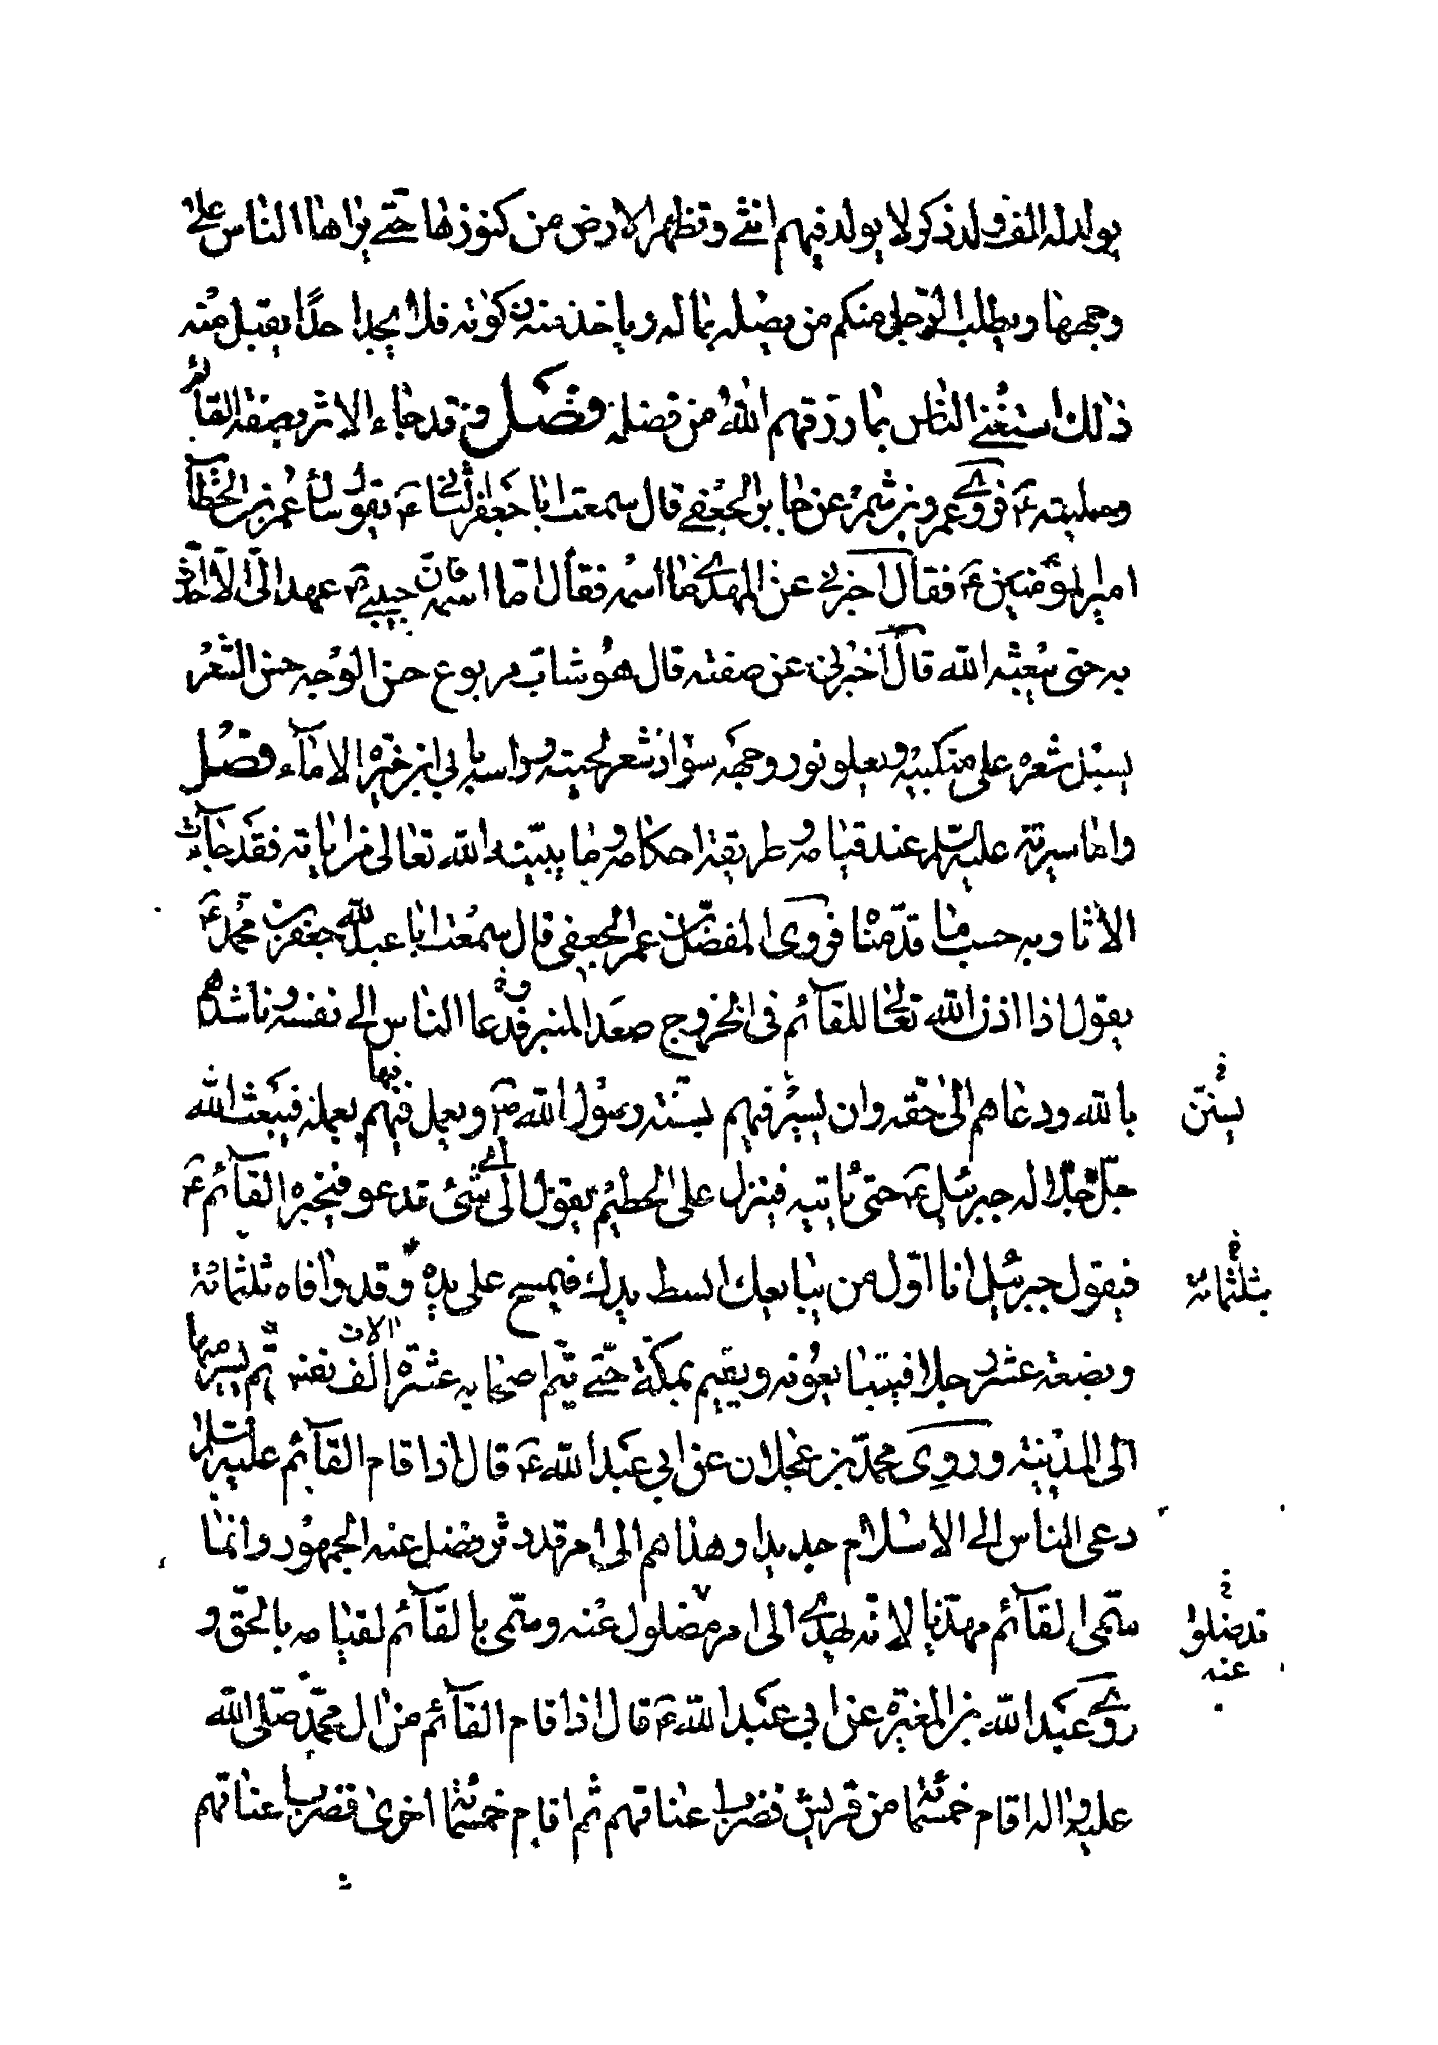 يولد له الف ولد ذكر لا يولد فيهم انثى وتظهر الارض من كنوزها حتى يراها الناس على
وجهها ويطلب الرجل منكم من يصله بماله وياخذ منه زكوته فلا يجد احدا يقبل منه
ذلك استغنى الناس بما رزقهم الله من فضله فصل وقد جاء الاثر بصفة القائم
وحليته ع فروى عمرو بن شمر عن جابر الجعفي قال سمعت ابا جعفر ع يقول سأل عمر بن الخطاب
امير المؤمنين ع فقال اخبرني عن المهدي ما اسمه فقال اما اسمه فان حبيبي ص عهد الى الا احدث
به حتى يبعثه الله قال اخبرني عن صفته قال هو شاب مربوع حسن الوجه حسن الشعر
يسيل شعره على منكبيه ويعلو نور وجهه سواد شعر لحيته وراسه بابي ابن خيرة الاماء فصل
واما سيرته عليه السلم عند قيامه وطريقة احكامه وما يبينه الله تعالى من اياته فقد جاءت
الاثار به حسب ما قدمناه فروى المفضل بن عمر الجعفي قال سمعت ابا عبد الله جعفر بن محمد ع
يقول اذا اذن الله تعالى للقائم في الخروج صعد المنبر فدعا الناس الى نفسه وناشدهم
بالله ودعاهم الى حقه وان يسير فيهم بسنة رسول الله ص ويعمل فيهم بعمله فيبعث الله
بسنن
فيها
جل جلاله جبرئيل ع حتى ياتيه فينزل على الحطيم يقول الى اي شئ تدعو فيخبره القائم ع
فيقول جبرئيل انا اول من يبايعك ابسط يدك فيمسح على يده وقد وافاه ثلثمائة
بثلثمائة
وبضعة عشر رجلا فيبايعونه ويقيم بمكة حتى يتم اصحابه عشرة الف نفس ثم يسير منها
الاف
الى المدينة وروى محمد بن عجلان عن ابي عبد الله ع قال اذا قام القائم عليه السلم
دعى الناس الى الاسلام جديدا وهداهم الى امر قد دثر فضل عنه الجمهور وانما
سمى القائم مهديا لانه يهدى الى امر مضلول عنه وسمى بالقائم لقيامه بالحق و
قد ضلوا
عنه
روى عبد الله بن المغيرة عن ابي عبد الله ع قال اذا قام القائم من ال محمد صلى الله
عليه واله اقام خمسمائة من قريش فضرب اعناقهم ثم اقام خمسمائة اخرى فضرب اعناقهم